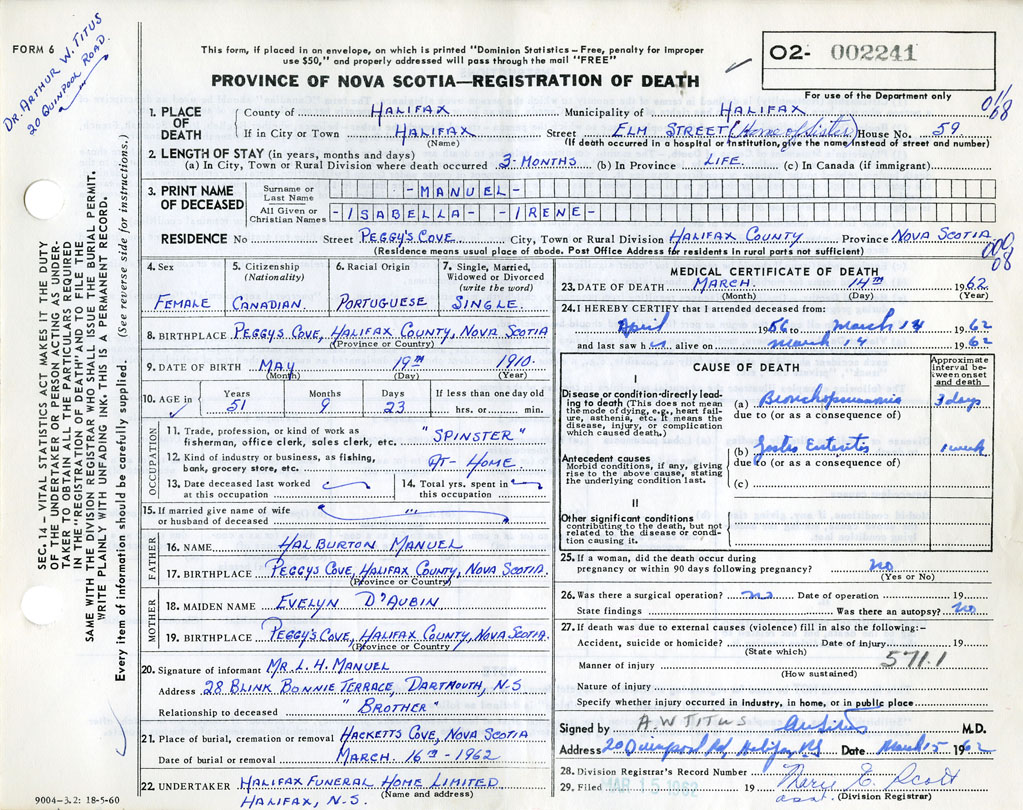 FORM 6
DR. ARTHUR W. TITUS
20 QUINPOOL ROAD.
This form, if placed in an envelope, on which is printed "Dominion Statistics—Free, penalty for improper
use $50," and properly addressed will pass through the mail "FREE"
PROVINCE OF NOVA SCOTIA—REGISTRATION OF DEATH
02- 002241
For use of the Department only
SEC. 14 — VITAL STATISTICS ACT MAKES IT THE DUTY
OF THE UNDERTAKER OR PERSON ACTING AS UNDER-
TAKER TO OBTAIN ALL THE PARTICULARS REQUIRED
IN THE "REGISTRATION OF DEATH" AND TO FILE THE
SAME WITH THE DIVISION REGISTRAR WHO SHALL ISSUE THE BURIAL PERMIT.
WRITE PLAINLY WITH UNFADING INK. THIS IS A PERMANENT RECORD.
Every item of information should be carefully supplied. (See reverse side for instructions.)
1. PLACE OF DEATH County of HALIFAX Municipality of HALIFAX
If in City or Town HALIFAX Street ELM STREET (Home of Sister) House No. 59
(Name) (If death occurred in a hospital or institution, give the name instead of street and number)
2. LENGTH OF STAY (in years, months and days)
(a) In City, Town or Rural Division where death occurred 3-MONTHS (b) In Province LIFE. (c) In Canada (if immigrant)
3. PRINT NAME OF DECEASED Surname or Last Name -MANUEL-
All Given or Christian Names -ISABELLA- -IRENE-
RESIDENCE No Street PEGGY'S COVE City, Town or Rural Division HALIFAX COUNTY Province NOVA SCOTIA
(Residence means usual place of abode. Post Office Address for residents in rural parts not sufficient)
4. Sex FEMALE
5. Citizenship (Nationality) CANADIAN
6. Racial Origin PORTUGUESE
7. Single, Married, Widowed or Divorced (write the word) SINGLE.
8. BIRTHPLACE PEGGYS COVE, HALIFAX COUNTY, NOVA SCOTIA
(Province or Country)
9. DATE OF BIRTH MAY 19TH 1910.
(Month) (Day) (Year)
10. AGE in Years Months Days If less than one day old
51 9 23 hrs. or min.
OCCUPATION
11. Trade, profession, or kind of work as
fisherman, office clerk, sales clerk, etc. "SPINSTER"
12. Kind of industry or business, as fishing,
bank, grocery store, etc. AT-HOME.
13. Date deceased last worked at this occupation
14. Total yrs. spent in this occupation
15. If married give name of wife
or husband of deceased "'
FATHER
16. NAME HALBURTON MANUEL
17. BIRTHPLACE PEGGYS COVE, HALIFAX COUNTY, NOVA SCOTIA.
(Province or Country)
MOTHER
18. MAIDEN NAME EVELYN D'AUBIN
19. BIRTHPLACE PEGGYS COVE, HALIFAX COUNTY, NOVA SCOTIA.
(Province or Country)
20. Signature of informant MR. L. H. MANUEL
Address 28 BLINK BONNIE TERRACE, DARTMOUTH, N.S
Relationship to deceased "BROTHER"
21. Place of burial, cremation or removal HACKETTS COVE, NOVA SCOTIA
Date of burial or removal MARCH. 16TH-1962
22. UNDERTAKER HALIFAX FUNERAL HOME LIMITED.
(Name and address)
HALIFAX, N.S.
9004-3.2: 18-5-60
MEDICAL CERTIFICATE OF DEATH
23. DATE OF DEATH MARCH. 14TH 1962
(Month) (Day) (Year)
24. I HEREBY CERTIFY that I attended deceased from:
April 1956 to March 14 1962
and last saw her alive on March 14 1962
CAUSE OF DEATH
Approximate interval between onset and death
I
Disease or condition directly lead-
ing to death (This does not mean
the mode of dying, e.g., heart fail-
ure, asthenia, etc. It means the
disease, injury, or complication
which caused death.)
(a) Bronchopneumonia 3 days
due to (or as a consequence of)
Antecedent causes
Morbid conditions, if any, giving
rise to the above cause, stating
the underlying condition last.
(b) Gastro Enteritis 1 week
due to (or as a consequence of)
(c)
II
Other significant conditions
contributing to the death, but not
related to the disease or condi-
tion causing it.
25. If a woman, did the death occur during
pregnancy or within 90 days following pregnancy? no
(Yes or No)
26. Was there a surgical operation? no Date of operation 19
State findings Was there an autopsy? no
27. If death was due to external causes (violence) fill in also the following:—
Accident, suicide or homicide? Date of injury 19
(State which) 571.1
Manner of injury
(How sustained)
Nature of injury
Specify whether injury occurred in industry, in home, or in public place
Signed by A W TITUS AW Titus M.D.
Address 20 Quinpool Rd, Halifax NS Date March 15 1962
28. Division Registrar's Record Number
29. Filed MAR 15 1962 19 Mary E. Scott
asst. (Division Registrar)